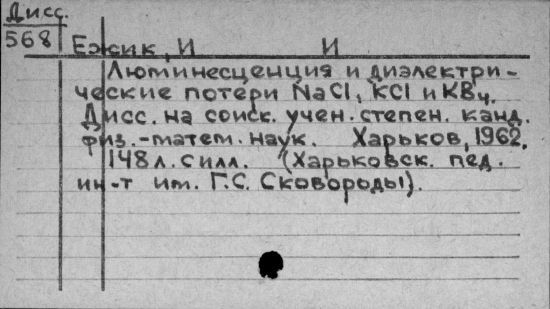 Дисс.
568
Ежик, И И
Люминесценция и диэлектри-
ческие потери NaCl, KCl и KBч.
Дисс. на соиск. учен. степен. канд.
физ.-матем. наук. Харьков, 1962.
148 л. с илл. (Харьковск. пед.
ин-т им. Г.С. Сковороды).